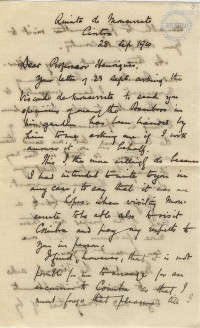 Quinta de Monserrate
Cintra
28 Sep 1920
Dear Professor Henriques,
Your letter of 23 Sept. asking the
Visconde de Monserrate to send you
specimens of the Bamboos in
his garden has been handed by
him to me, asking me if I will
answer it on his behalf.
This I the more willingly do because
I had intended to write to you in
any case, to say that it was my
hope when visiting Mon-
serrate to be able also to visit
Coimbra and pay my respects to
you in person.
I find, however, that it is not
possible for me to arrange for an
excursion to Coimbra so that I
must forgo that pleasure